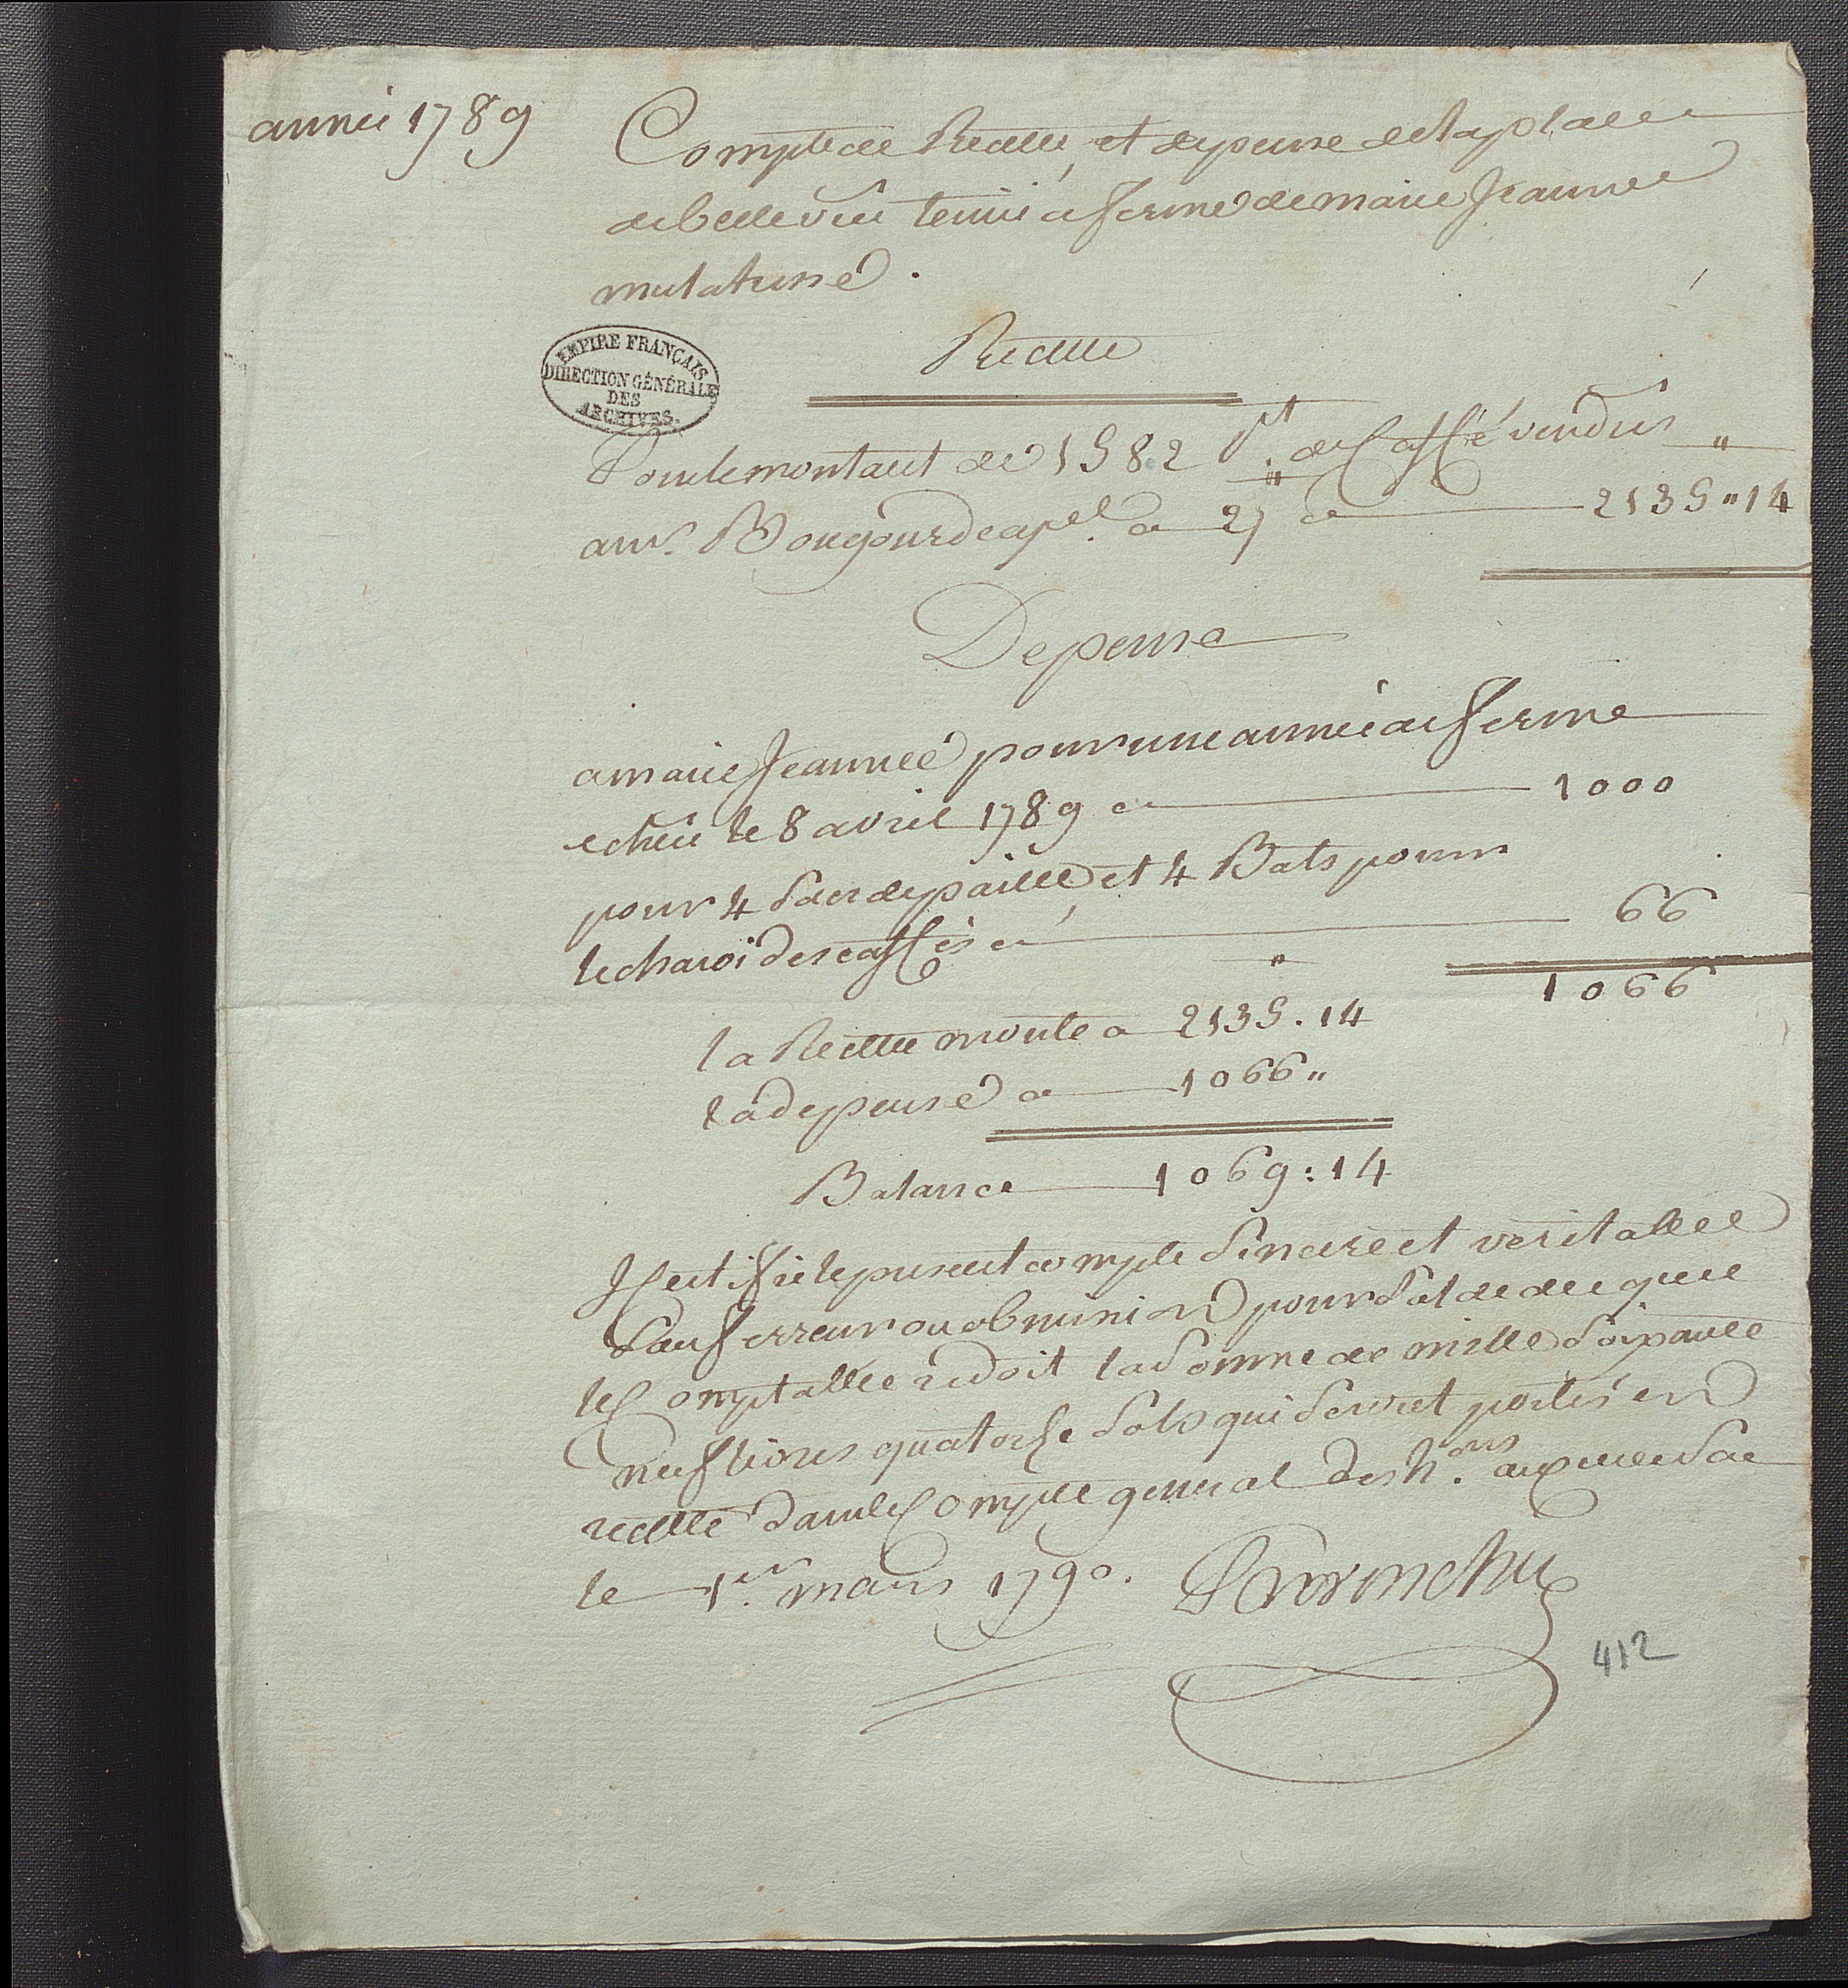 année 1789
Compte de Recette et depense de la place
de bellevüe tenüe a ferme de marie Jeanne
mulatresse.
EMPIRE FRANÇAIS
DIRECTION GÉNÉRALE
DES
ARCHIVES.
Recette
Pour le montant de 1582 lt. de Caffé vendus
au sr. Bougourd capne. a 27 s ci 2135 " 14
Depense
a marie Jeanne pour une année de ferme
echüe le 8 avril 1789 ci 1000
pour 4 sacs de paille et 4 Bats pour
le charoi des caffés ci 66
1066
la Recette monte a 2135 . 14
la depense a 1066 "
Balance 1069 : 14
Je certifie le present compte sincere et veritable
sauf erreur ou obmission pour solde de quel
le Comptable redoit la somme de mille soixante
neuf livres quatorse sols qui seront portés en
recette dans le Compte general des h.ons
le 1er. mars 1790.
412